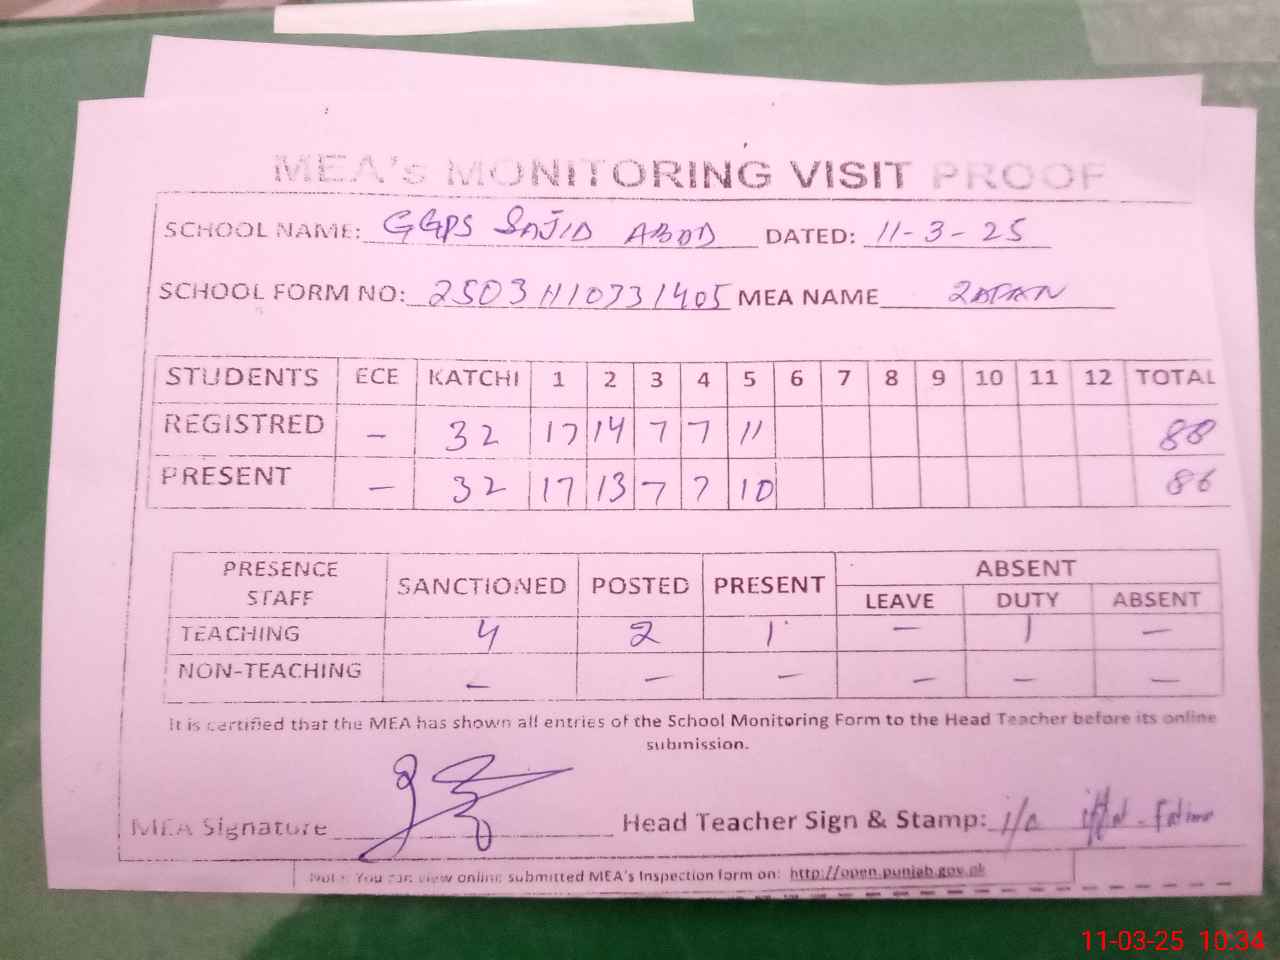 MEA's MONITORING VISIT PROOF
SCHOOL NAME: GGPS SAJID ABAD DATED: 11-3-25
SCHOOL FORM NO: 25031110731405 MEA NAME
STUDENTS ECE KATCHI 1 2 3 4 5 6 7 8 9 10 11 12 TOTAL
REGISTRED - 32 17 14 7 7 11 88
PRESENT - 32 17 13 7 7 10 86
PRESENCE STAFF SANCTIONED POSTED PRESENT ABSENT
LEAVE DUTY ABSENT
TEACHING 4 2 1 - 1 -
NON-TEACHING - - - - - -
It is certified that the MEA has shown all entries of the School Monitoring Form to the Head Teacher before its online
submission.
MEA Signature Head Teacher Sign & Stamp: i/c Fatima
Note: You can view online submitted MEA's Inspection form on: http://open.punjab.gov.pk
11-03-25 10:34